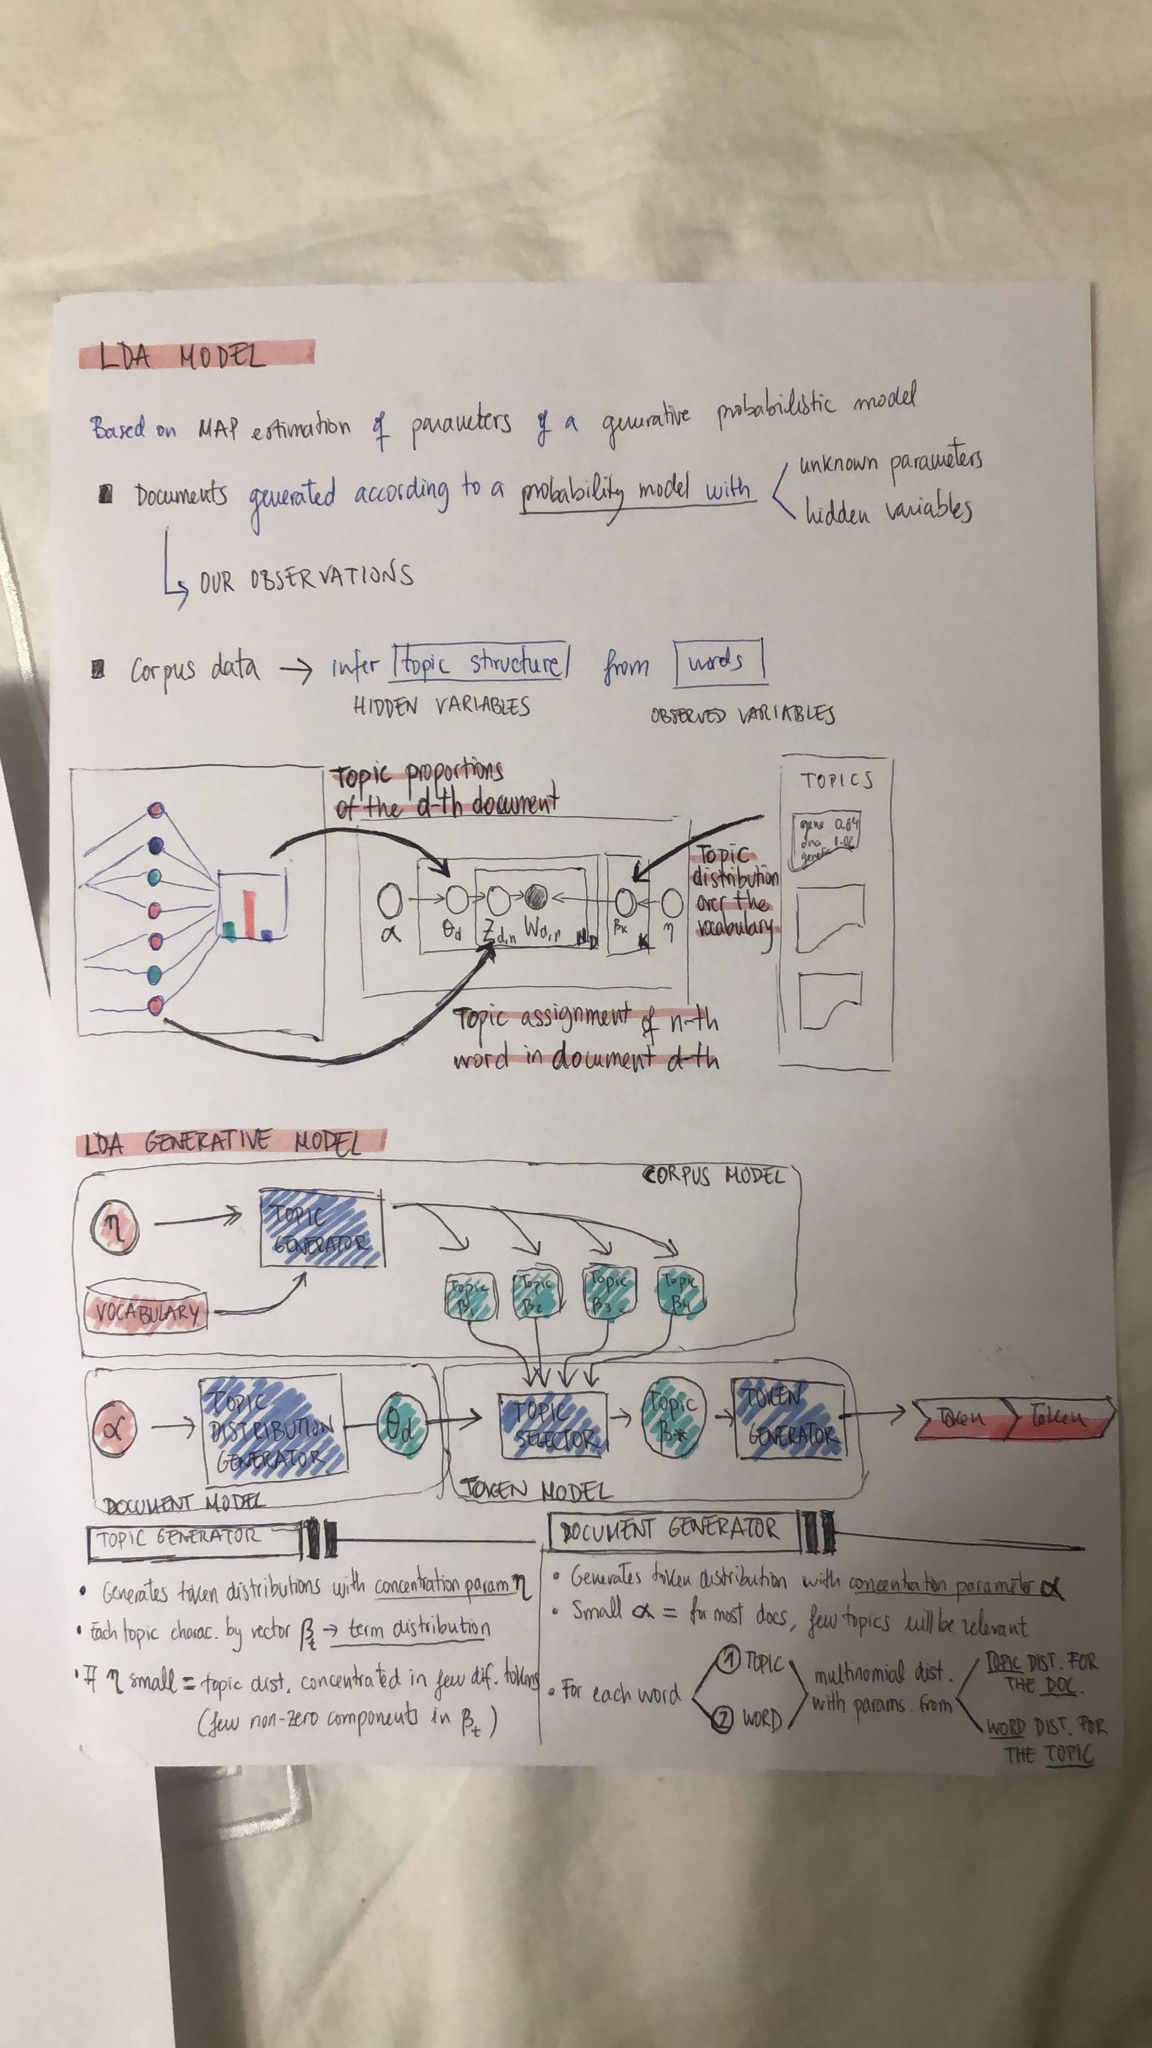 LDA MODEL
Based on MAP estimation of parameters of a generative probabilistic model
Documents generated according to a probability model with
unknown parameters
hidden variables
OUR OBSERVATIONS
Corpus data → infer topic structure from words
HIDDEN VARIABLES
OBSERVED VARIABLES
Topic proportions
of the d-th document
TOPICS
gene 0.04
dna 0.02
genetic
Topic
distribution
over the
vocabulary
α θd Zd,n Wd,n ND βk K η
Topic assignment of n-th
word in document d-th
LDA GENERATIVE MODEL
CORPUS MODEL
η
TOPIC
GENERATOR
VOCABULARY
Topic
β1
Topic
β2
Topic
β3
Topic
β4
α
TOPIC
DISTRIBUTION
GENERATOR
θd
DOCUMENT MODEL
TOPIC
SELECTOR
Topic
β*
TOKEN
GENERATOR
TOKEN MODEL
Token
Token
TOPIC GENERATOR
• Generates token distributions with concentration param η
• Each topic charac. by vector βt → term distribution
• If η small = topic dist. concentrated in few dif. tokens
(few non-zero components in βt)
DOCUMENT GENERATOR
• Generates token distribution with concentration parameter α
• Small α = for most docs, few topics will be relevant
• For each word
1 TOPIC
2 WORD
multinomial dist.
with params. from
TOPIC DIST. FOR
THE DOC.
WORD DIST. FOR
THE TOPIC